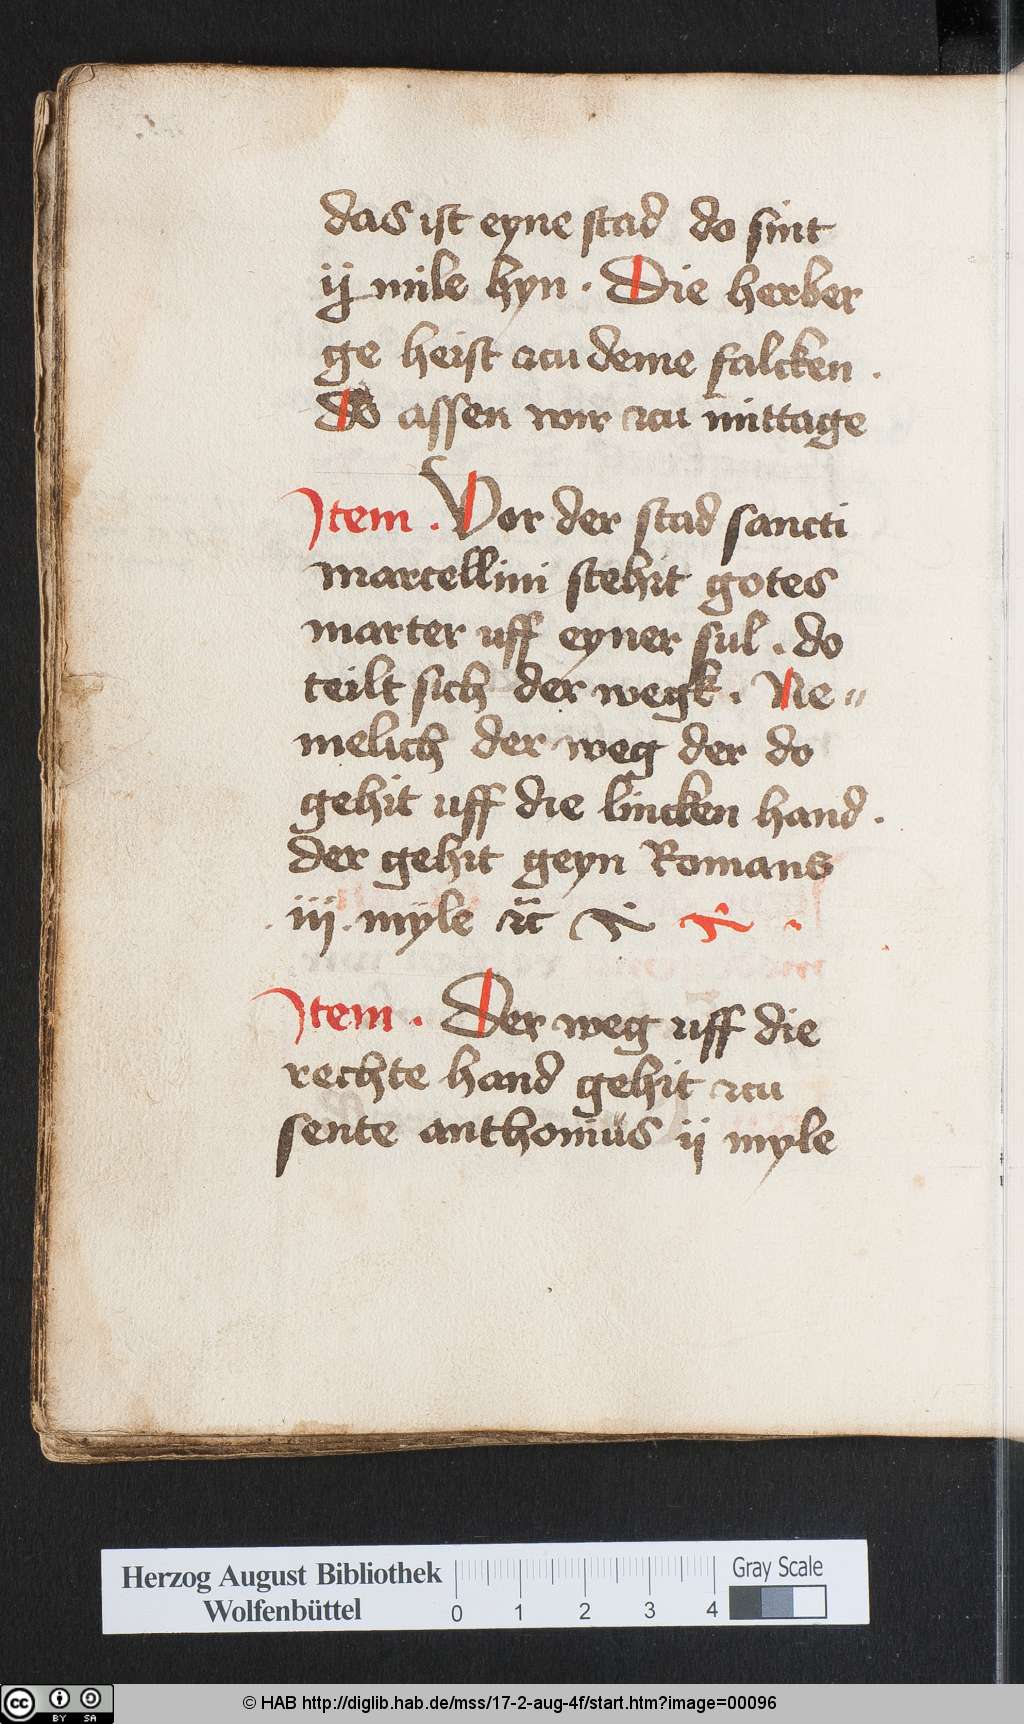 das ist eyne stad do sint
ij mile hyn . Die herber
ge heist zcu deme falcken .
do assen wir zcu mittage
Item . Vor der stad sancti
marcellini stehit gotes
marter uff eyner sul . do
teilt sich der wegk . Ne=
melich der weg der do
gehit uff die lincken hand .
der gehit geyn Romans
. iij . myle
Item . Der weg uff die
rechte hand gehit zcu
sente anthonius ij myle
Herzog August Bibliothek
Wolfenbüttel
0 1 2 3 4
Gray Scale
cc BY SA
© HAB http://diglib.hab.de/mss/17-2-aug-4f/start.htm?image=00096